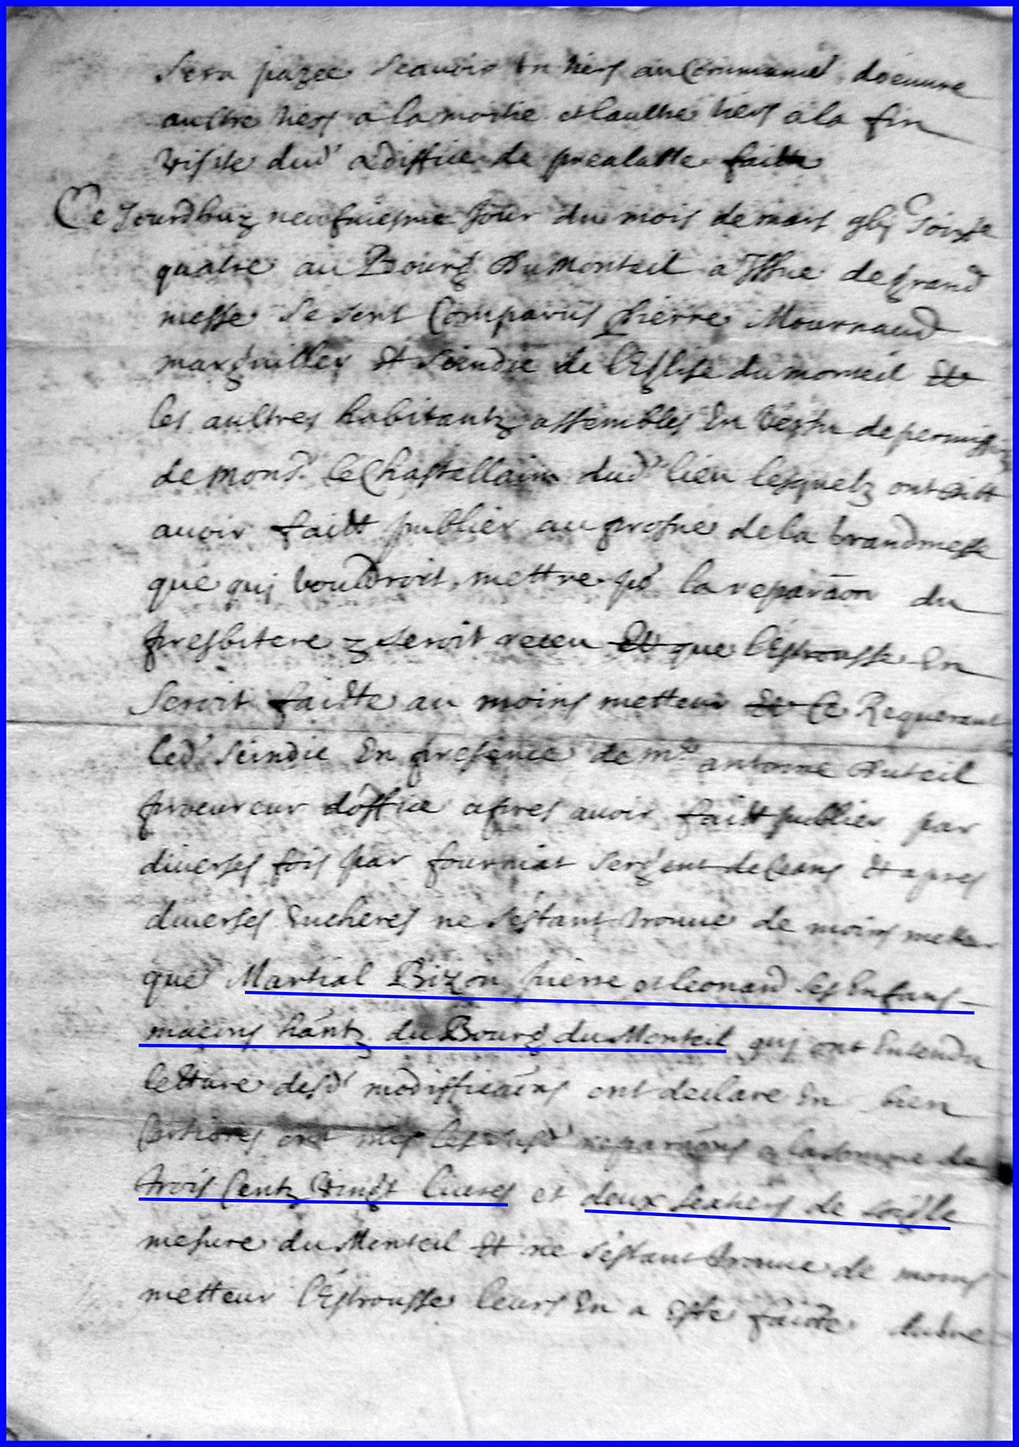 Sera payee scavoir un tiers au Commancet doeuvre
aultre tiers a la moitie et laultre tiers a la fin
visite dud' ediffice de prealable faitte
Ce Jourdhuy neufuiesme Jour du mois de mars gbj Soixte
quatre au Bourg Du Monteil a Issue de grand
messe Se sont Comparus pierre Mournaud
marguillier Et Scindic de l'Eglise du monteil Et
les aultres habitantz assembles En vertu de permission
de Mons.r le Chastellain dud' lieu lesquelz ont dict
avoir faict publier au prosne de la grandmesse
que quj vouldroit mettre po la reparaon du
presbitere y seroit receu Et que l'Estrousse En
Seroit faicte au moins metteur Et Ce Requerant
led' Scindic En presence de m.re antoine Duteil
procureur d'office apres avoir faict publier par
diverses fois par fourniat sergent de Ceans Et apres
diverses Encheres ne s'estant trouve de moins metteur
que Martial Bizon pierre et leonard ses Enfans
macons hantz du Bourg du Monteil quj ont Entendu
lecture desd' modifficaons ont declare En bien
ont mis reparaons a la somme de
trois Centz vingt livres et deux sextiers de soigle
mesure du Monteil Et ne s'estant trouve de moins
metteur l'Estrousse leurs En a Este faicte